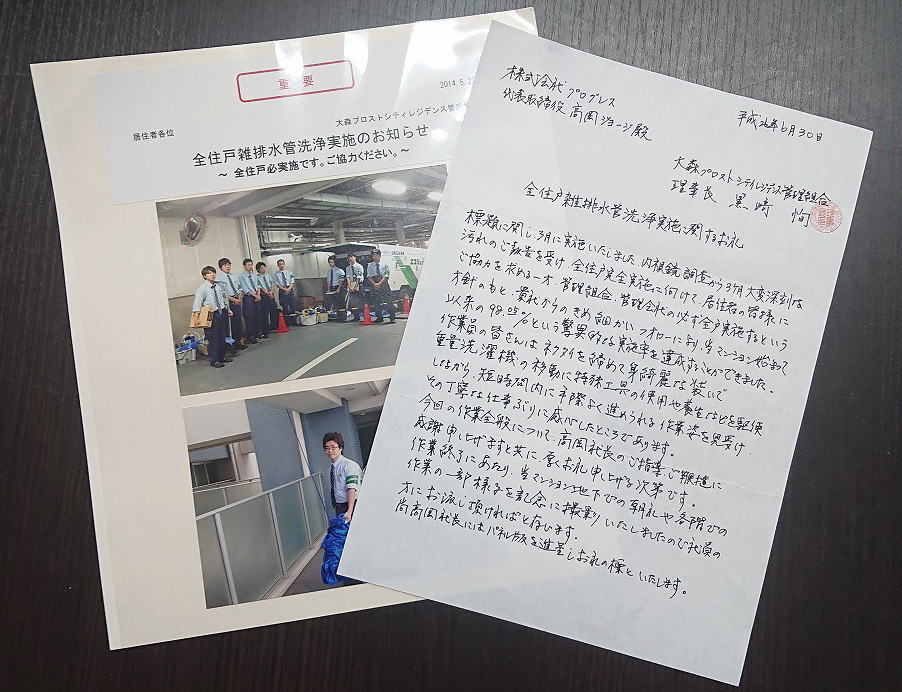 重要
2014.5.2
大森プロストシティレジデンス管理
居住者各位
全住戸雑排水管洗浄実施のお知らせ
～ 全住戸必実施です。ご協力ください。～
株式会社プログレス
代表取締役 高岡ジョージ殿
平成26年6月30日
大森プロストシティレジデンス管理組合
理事長 黒崎 恂
全住戸雑排水管洗浄実施に関するお礼
標題に関し3月に実施いたしました内視鏡調査から3ヶ月大変深刻な
汚れのご報告を受け全住戸完全実施に向けて、居住者の皆様に
ご協力を求める一方、管理組合、管理会社の必ず全戸実施するという
方針のもと、貴社からのきめ細かいフォローにより、当マンション始まって
以来の98.25%という驚異的な実施率を達成することができました。
作業員の皆さんはネクタイを締めて身綺麗な装いで
重量洗濯機の移動に特殊工具の使用や養生などを駆使
しながら、短時間内に手際よく進められる作業姿を見受け、
その丁寧な仕事ぶりに感心したところであります。
今回の作業全般について、高岡社長のご指導ご鞭撻に
感謝申し上げますと共に、厚くお礼申し上げる次第です。
作業終了にあたり、当マンション地下での朝礼や各階での
作業の一部様子を記念に撮影いたしましたので社員の
方にお渡し頂ければと存じます。
尚高岡社長にはパネル版を進呈しお礼の標といたします。